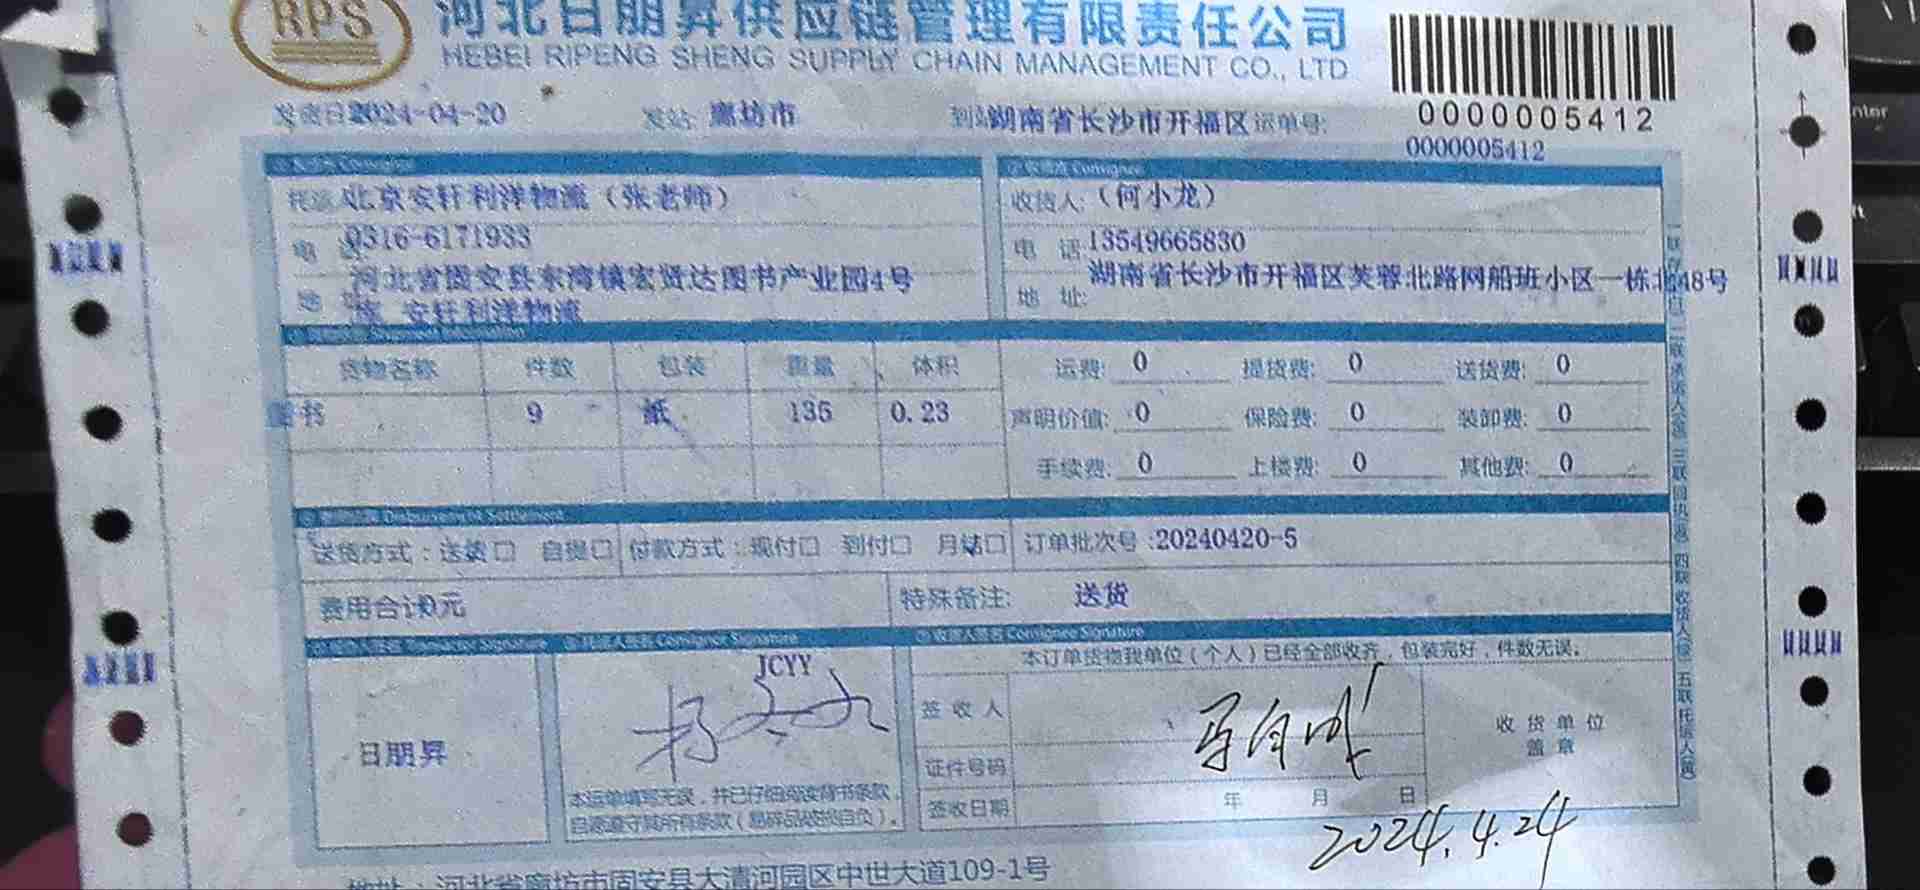 RPS
河北日朋昇供应链管理有限责任公司
HEBEI RIPENG SHENG SUPPLY CHAIN MANAGEMENT CO., LTD
0000005412
发货日期 2024-04-20 发站: 廊坊市 到站 湖南省长沙市开福区 运单号:
0000005412
Consignee
北京安轩利洋物流（张老师） 收货人:（何小龙）
电 话 0316-6171933 电 话 13549665830
地 址 河北省固安县东湾镇宏贤达图书产业园4号 地 址: 湖南省长沙市开福区芙蓉北路网船班小区一栋北48号
安轩利洋物流
货物名称 件数 包装 重量 体积 运费: 0 提货费: 0 送货费: 0
图书 9 纸 135 0.23 声明价值: 0 保险费: 0 装卸费: 0
手续费: 0 上楼费: 0 其他费: 0
Disbursement Settlement
送货方式：送货口 自提口 付款方式：现付口 到付口 月结口 订单批次号:20240420-5
费用合计0元 特殊备注: 送货
Consignor Signature 收货人签名 Consignee Signature
JCYY 本订单货物我单位（个人）已经全部收齐，包装完好，件数无误。
签收人 收货单位
盖章
日朋昇 证件号码
本运单填写无误，并已仔细阅读背书条款， 签收日期 年 月 日
自愿遵守其所有条款（易碎品破损自负）。
2024.4.24
地址：河北省廊坊市固安县大清河园区中世大道109-1号